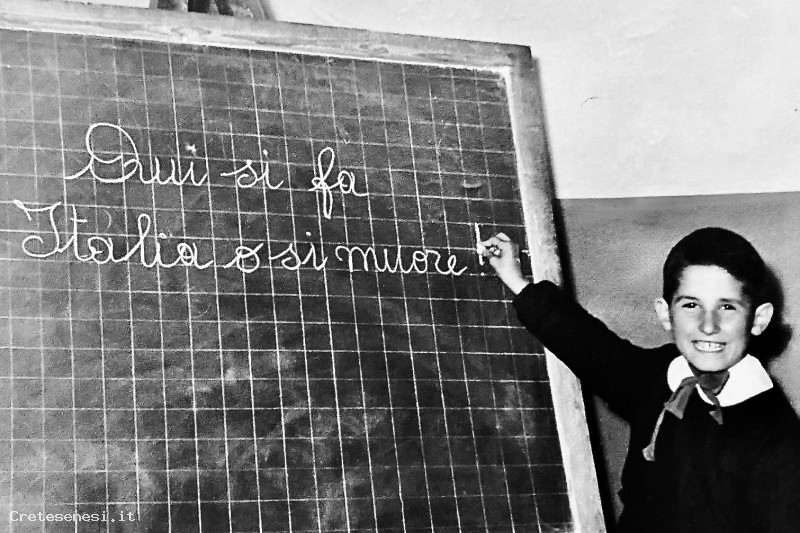 Qui si fa
Italia o si muore!
Cretesenesi.it